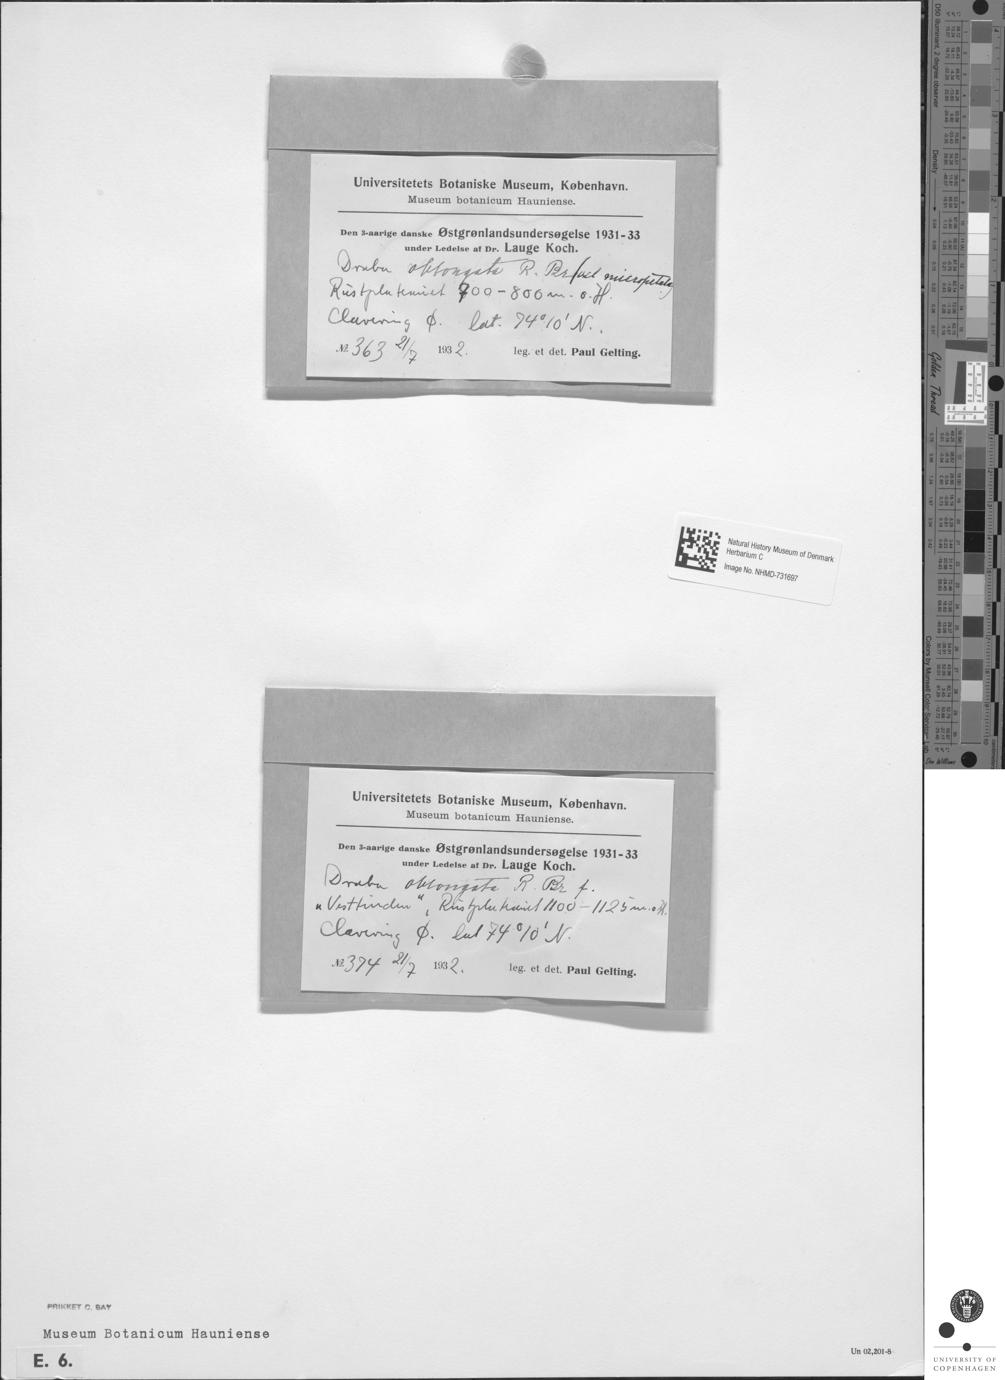 Universitetets Botaniske Museum, København.
Museum botanicum Hauniense.
Den 3-aarige danske Østgrønlandsundersøgelse 1931-33
under Ledelse af Dr. Lauge Koch.
Draba oblongata R. Br. (vel micropetala)
Rustplateauet 700-800 m. o. H.
Clavering Ø. lat. 74°10' N.
№ 363 21/7 1932. leg. et det. Paul Gelting.
Natural History Museum of Denmark
Herbarium C
Image No. NHMD-731697
Universitetets Botaniske Museum, København.
Museum botanicum Hauniense.
Den 3-aarige danske Østgrønlandsundersøgelse 1931-33
under Ledelse af Dr. Lauge Koch.
Draba oblongata R. Br. f.
"Vesttinden", Rustplateauet 1100-1125 m. o. H.
Clavering Ø. lat 74°10' N.
№ 374 21/7 1932. leg. et det. Paul Gelting.
PRIKKET C. BAY
Museum Botanicum Hauniense
E. 6.
Un 02,201-8
UNIVERSITY OF
COPENHAGEN
D50 Illuminant, 2 degree observer
Density
Golden Thread
Colors by Munsell Color Services Lab